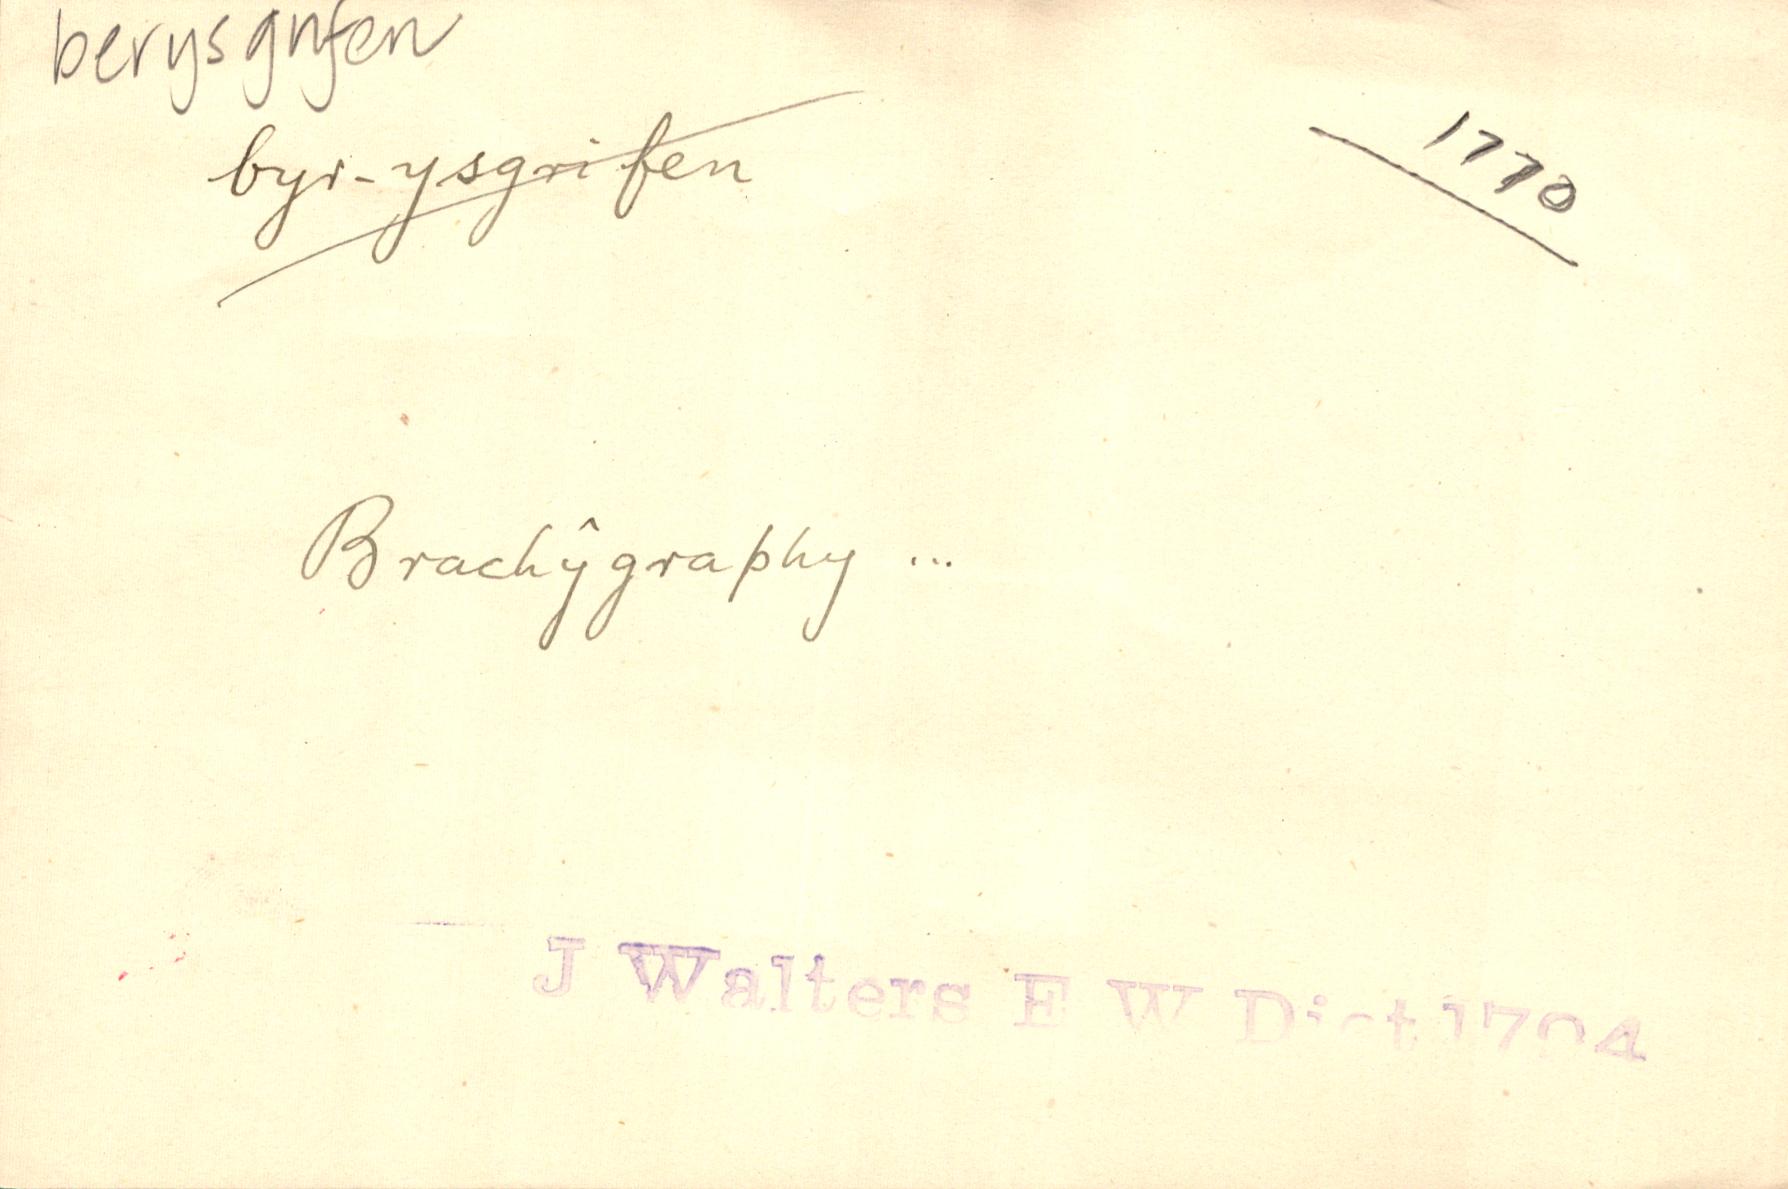 berysgrifen
byr-ysgrifen
1770
Brachŷgraphy ...
J Walters E W Dict 1794